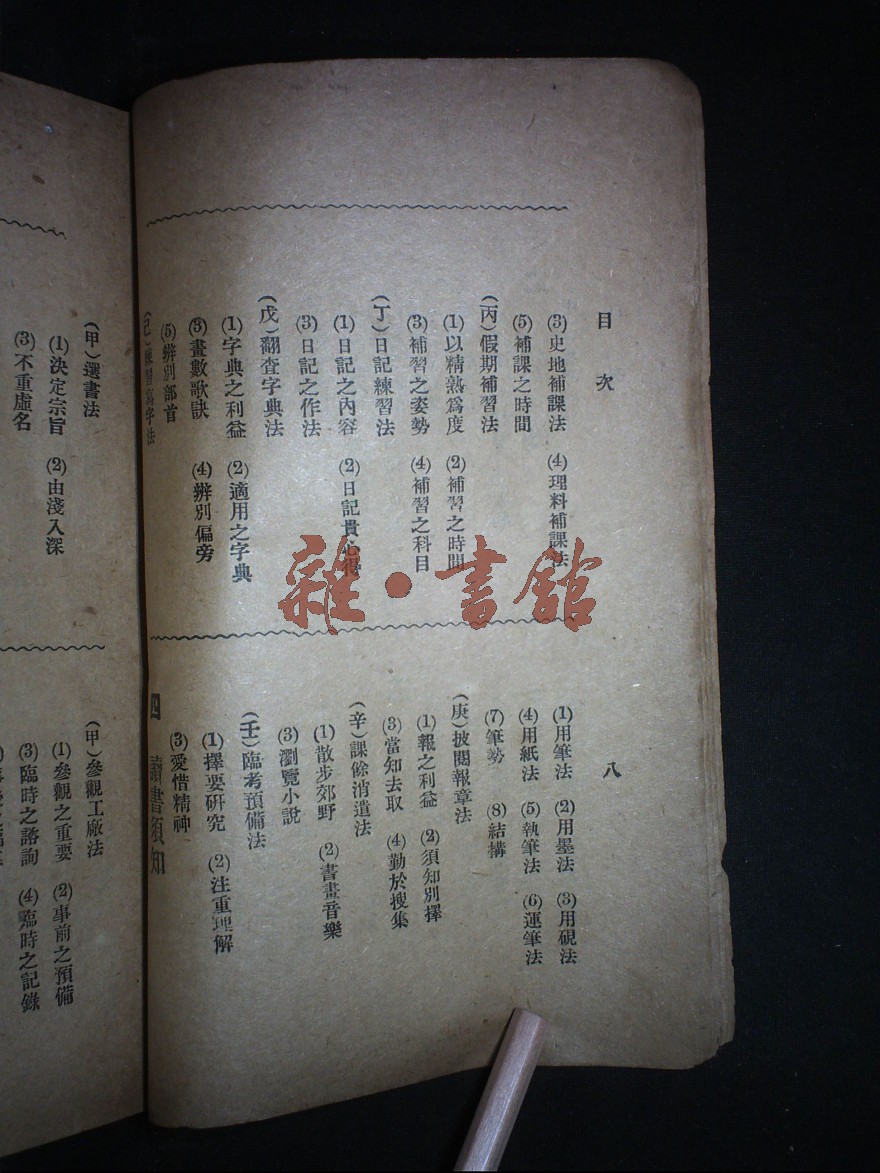 目次
八
(3)史地補課法 (4)理料補課法
(5)補課之時間
(丙)假期補習法
(1)以精熟爲度 (2)補習之時間
(3)補習之姿勢 (4)補習之科目
(丁)日記練習法
(1)日記之內容 (2)日記貴心得
(3)日記之作法
(戊)翻查字典法
(1)字典之利益 (2)適用之字典
(3)畫數歌訣 (4)辨別偏旁
(5)辨別部首
(己)練習寫字法
(1)用筆法 (2)用墨法 (3)用硯法
(4)用紙法 (5)執筆法 (6)運筆法
(7)筆勢 (8)結構
(庚)披閱報章法
(1)報之利益 (2)須知別擇
(3)當知去取 (4)勤於搜集
(辛)課餘消遣法
(1)散步郊野 (2)書畫音樂
(3)瀏覽小說
(壬)臨考預備法
(1)擇要研究 (2)注重理解
(3)愛惜精神
四 讀書須知
(甲)選書法
(1)決定宗旨 (2)由淺入深
(3)不重虛名
(甲)參觀工廠法
(1)參觀之重要 (2)事前之預備
(3)臨時之諮詢 (4)臨時之記錄
雜·書館